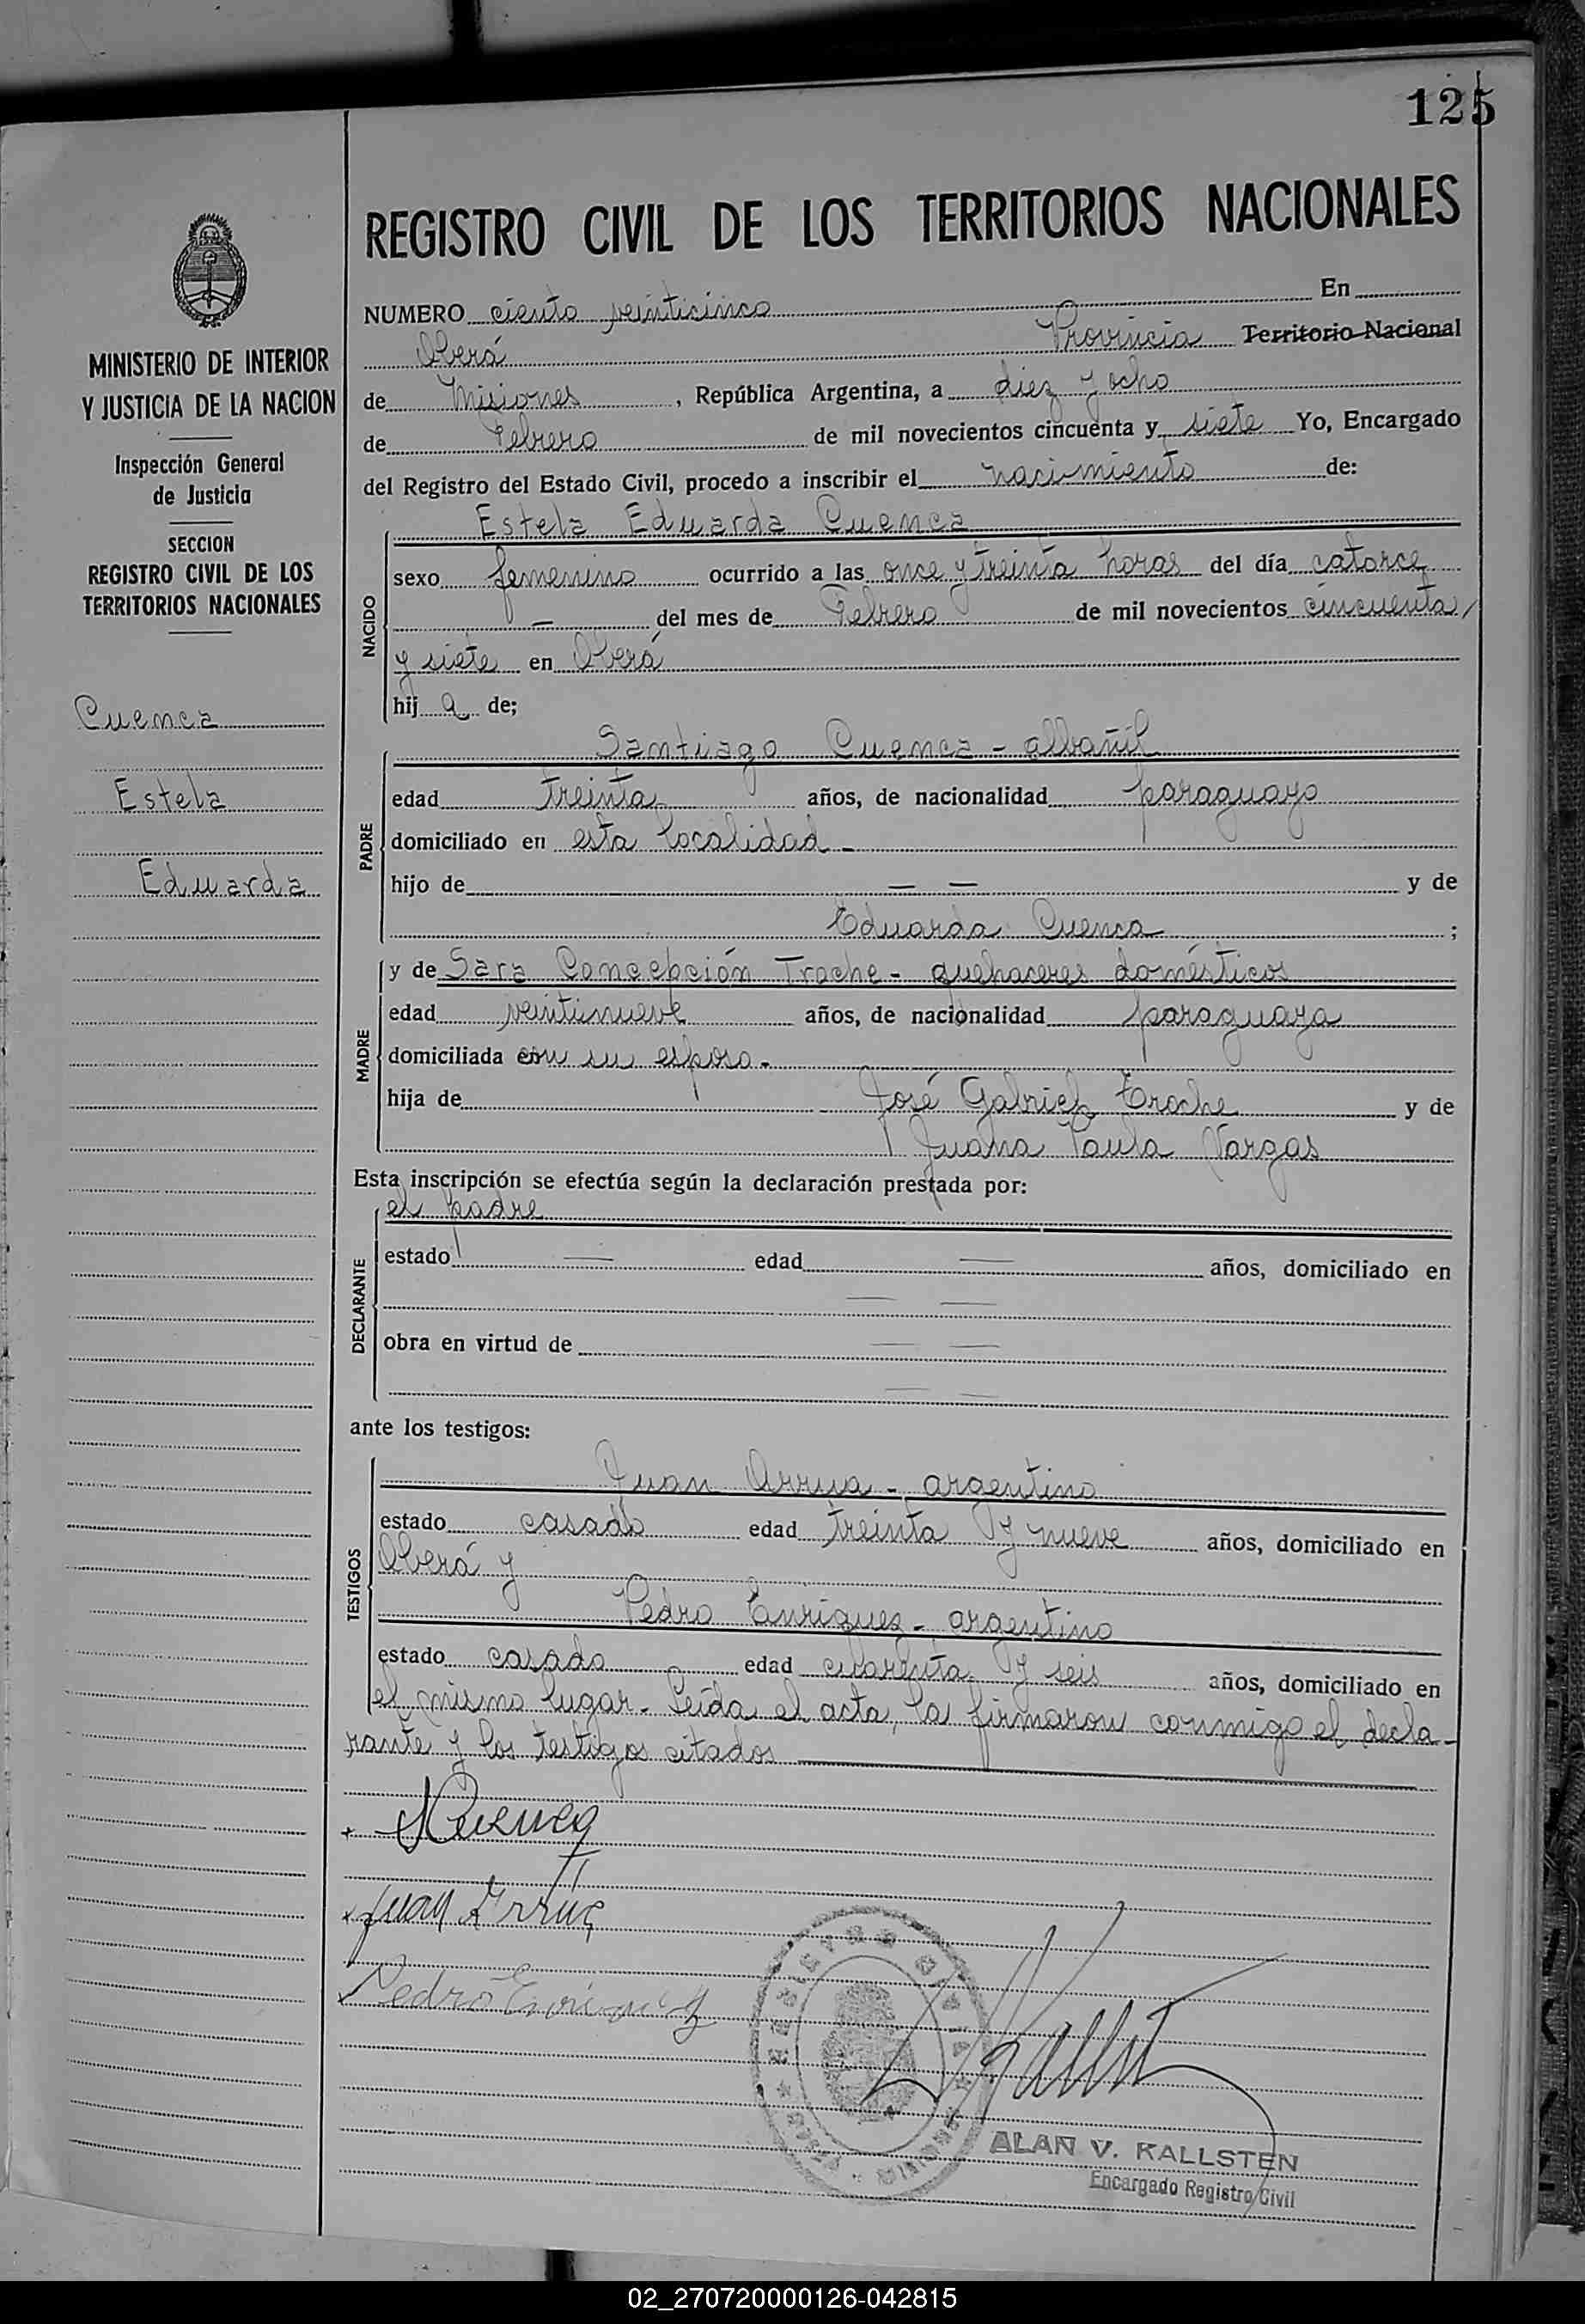 125
REGISTRO CIVIL DE LOS TERRITORIOS NACIONALES
MINISTERIO DE INTERIOR
Y JUSTICIA DE LA NACION
Inspección General
de Justicia
SECCION
REGISTRO CIVIL DE LOS
TERRITORIOS NACIONALES
Cuenca
Estela
Eduarda
NUMERO ciento veinticinco En
Oberá Provincia Territorio Nacional
de Misiones, República Argentina, a diez y ocho
de Febrero de mil novecientos cincuenta y siete Yo, Encargado
del Registro del Estado Civil, procedo a inscribir el nacimiento de:
NACIDO
Estela Eduarda Cuenca
sexo femenino ocurrido a las once y treinta horas del día catorce
— del mes de Febrero de mil novecientos cincuenta
y siete en Oberá
hija de;
PADRE
Santiago Cuenca - albañil
edad treinta años, de nacionalidad paraguayo
domiciliado en esta localidad -
hijo de — — y de
Eduarda Cuenca ;
MADRE
y de Sara Concepción Troche - quehaceres domésticos
edad veintinueve años, de nacionalidad paraguaya
domiciliada con su esposo -
hija de José Gabriel Troche y de
Juana Paula Vargas
Esta inscripción se efectúa según la declaración prestada por:
DECLARANTE
el padre
estado — edad — años, domiciliado en
— —
obra en virtud de — —
— —
ante los testigos:
TESTIGOS
Juan Arrua - argentino
estado casado edad treinta y nueve años, domiciliado en
Oberá y
Pedro Enriquez - argentino
estado casado edad cuarenta y seis años, domiciliado en
el mismo lugar - Leída el acta, la firmaron conmigo el decla-
rante y los testigos citados
SCuenca
Juan Arrua
Pedro Enriquez
ALAN V. KALLSTEN
Encargado Registro Civil
02_270720000126-042815